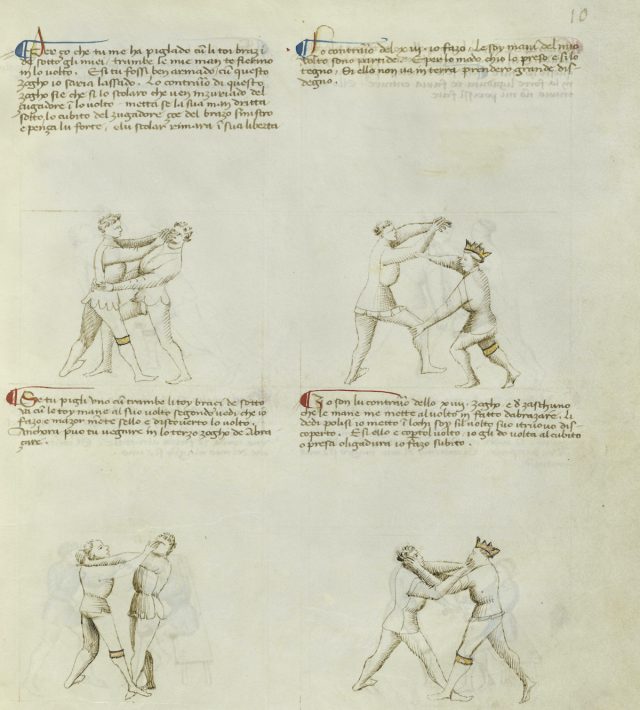 10
Per ço che tu me ha piglado cu(n) li toy brazi
de sotto gli miei, trambe le mie man te fierino
in lo volto. E si tu fossi ben armado, cu(n) questo
zogho io saria lassado. Lo contrario di questo
zogho si è che si lo scolaro che ven inzuriado del
zugadore i(n) lo volto metta se la sua man dritta
sotto lo cubito del zugadore çoe del brazo sinistro
e penza lu forte, e lu scolar rimarà i(n) sua libertà
Lo contrario del xiii io fazo. Le soy mani del mio
volto sono partide. E per lo modo ch'io lo preso e si lo
tegno, Si ello non va in terra prenderò grande dis-
degno.
Se tu pigli uno cu(n) trambe li toy braci de sotto
va cu(n) le toy mane al suo volto segondo vedi che io
fazo, e mazormente s'ello è discoverto lo volto.
Anchora può tu vegnire in lo terzo zogho de Abra-
çare.
Io son lu contrario dello xiiii zogho e d zaschuno
che le mane me mette al volto in fatto d'abrazare. Li
dedi polisi io metto i(n) l'ochi soy si 'l volto suo i' truovo dis-
coperto. E si ello è cop(er)to 'l volto, io gli dò volta al cubito
o presa o ligadura io fazo subito.